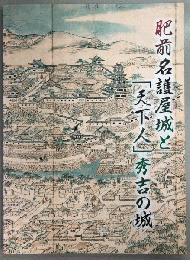 肥前名護屋城と
「天下人」秀吉の城